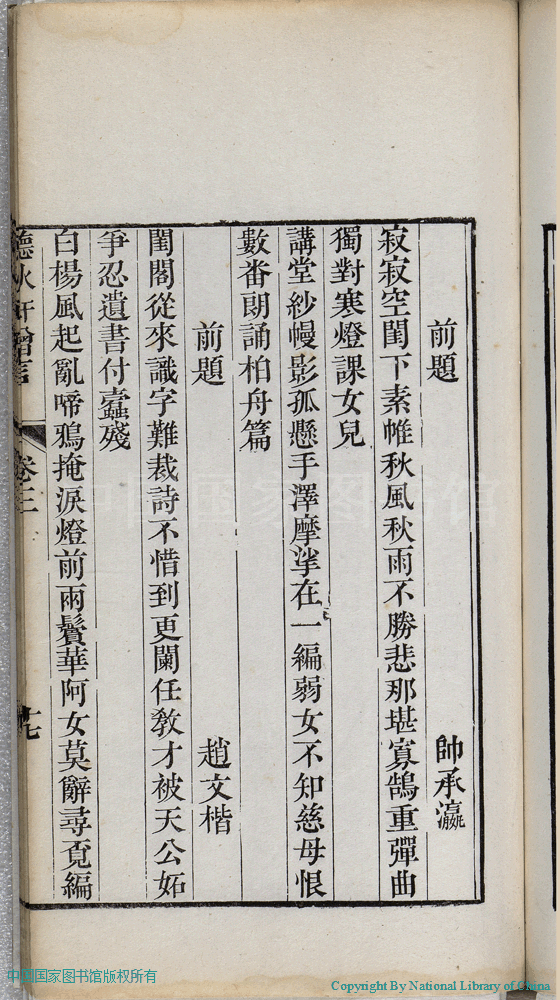 前題
帥承瀛
寂寂空閨下素帷秋風秋雨不勝悲那堪寡鵠重彈曲
獨對寒燈課女兒
講堂紗幔影孤懸手澤摩挲在一編弱女不知慈母恨
數番朗誦柏舟篇
前題
趙文楷
閨閣從來識字難裁詩不惜到更闌任教才被天公妬
爭忍遺書付蠹殘
白楊風起亂啼鴉掩淚燈前兩鬢華阿女莫辭尋覔編
卷三
十七
中国国家图书馆
中国国家图书馆版权所有
Copyright By National Library of China